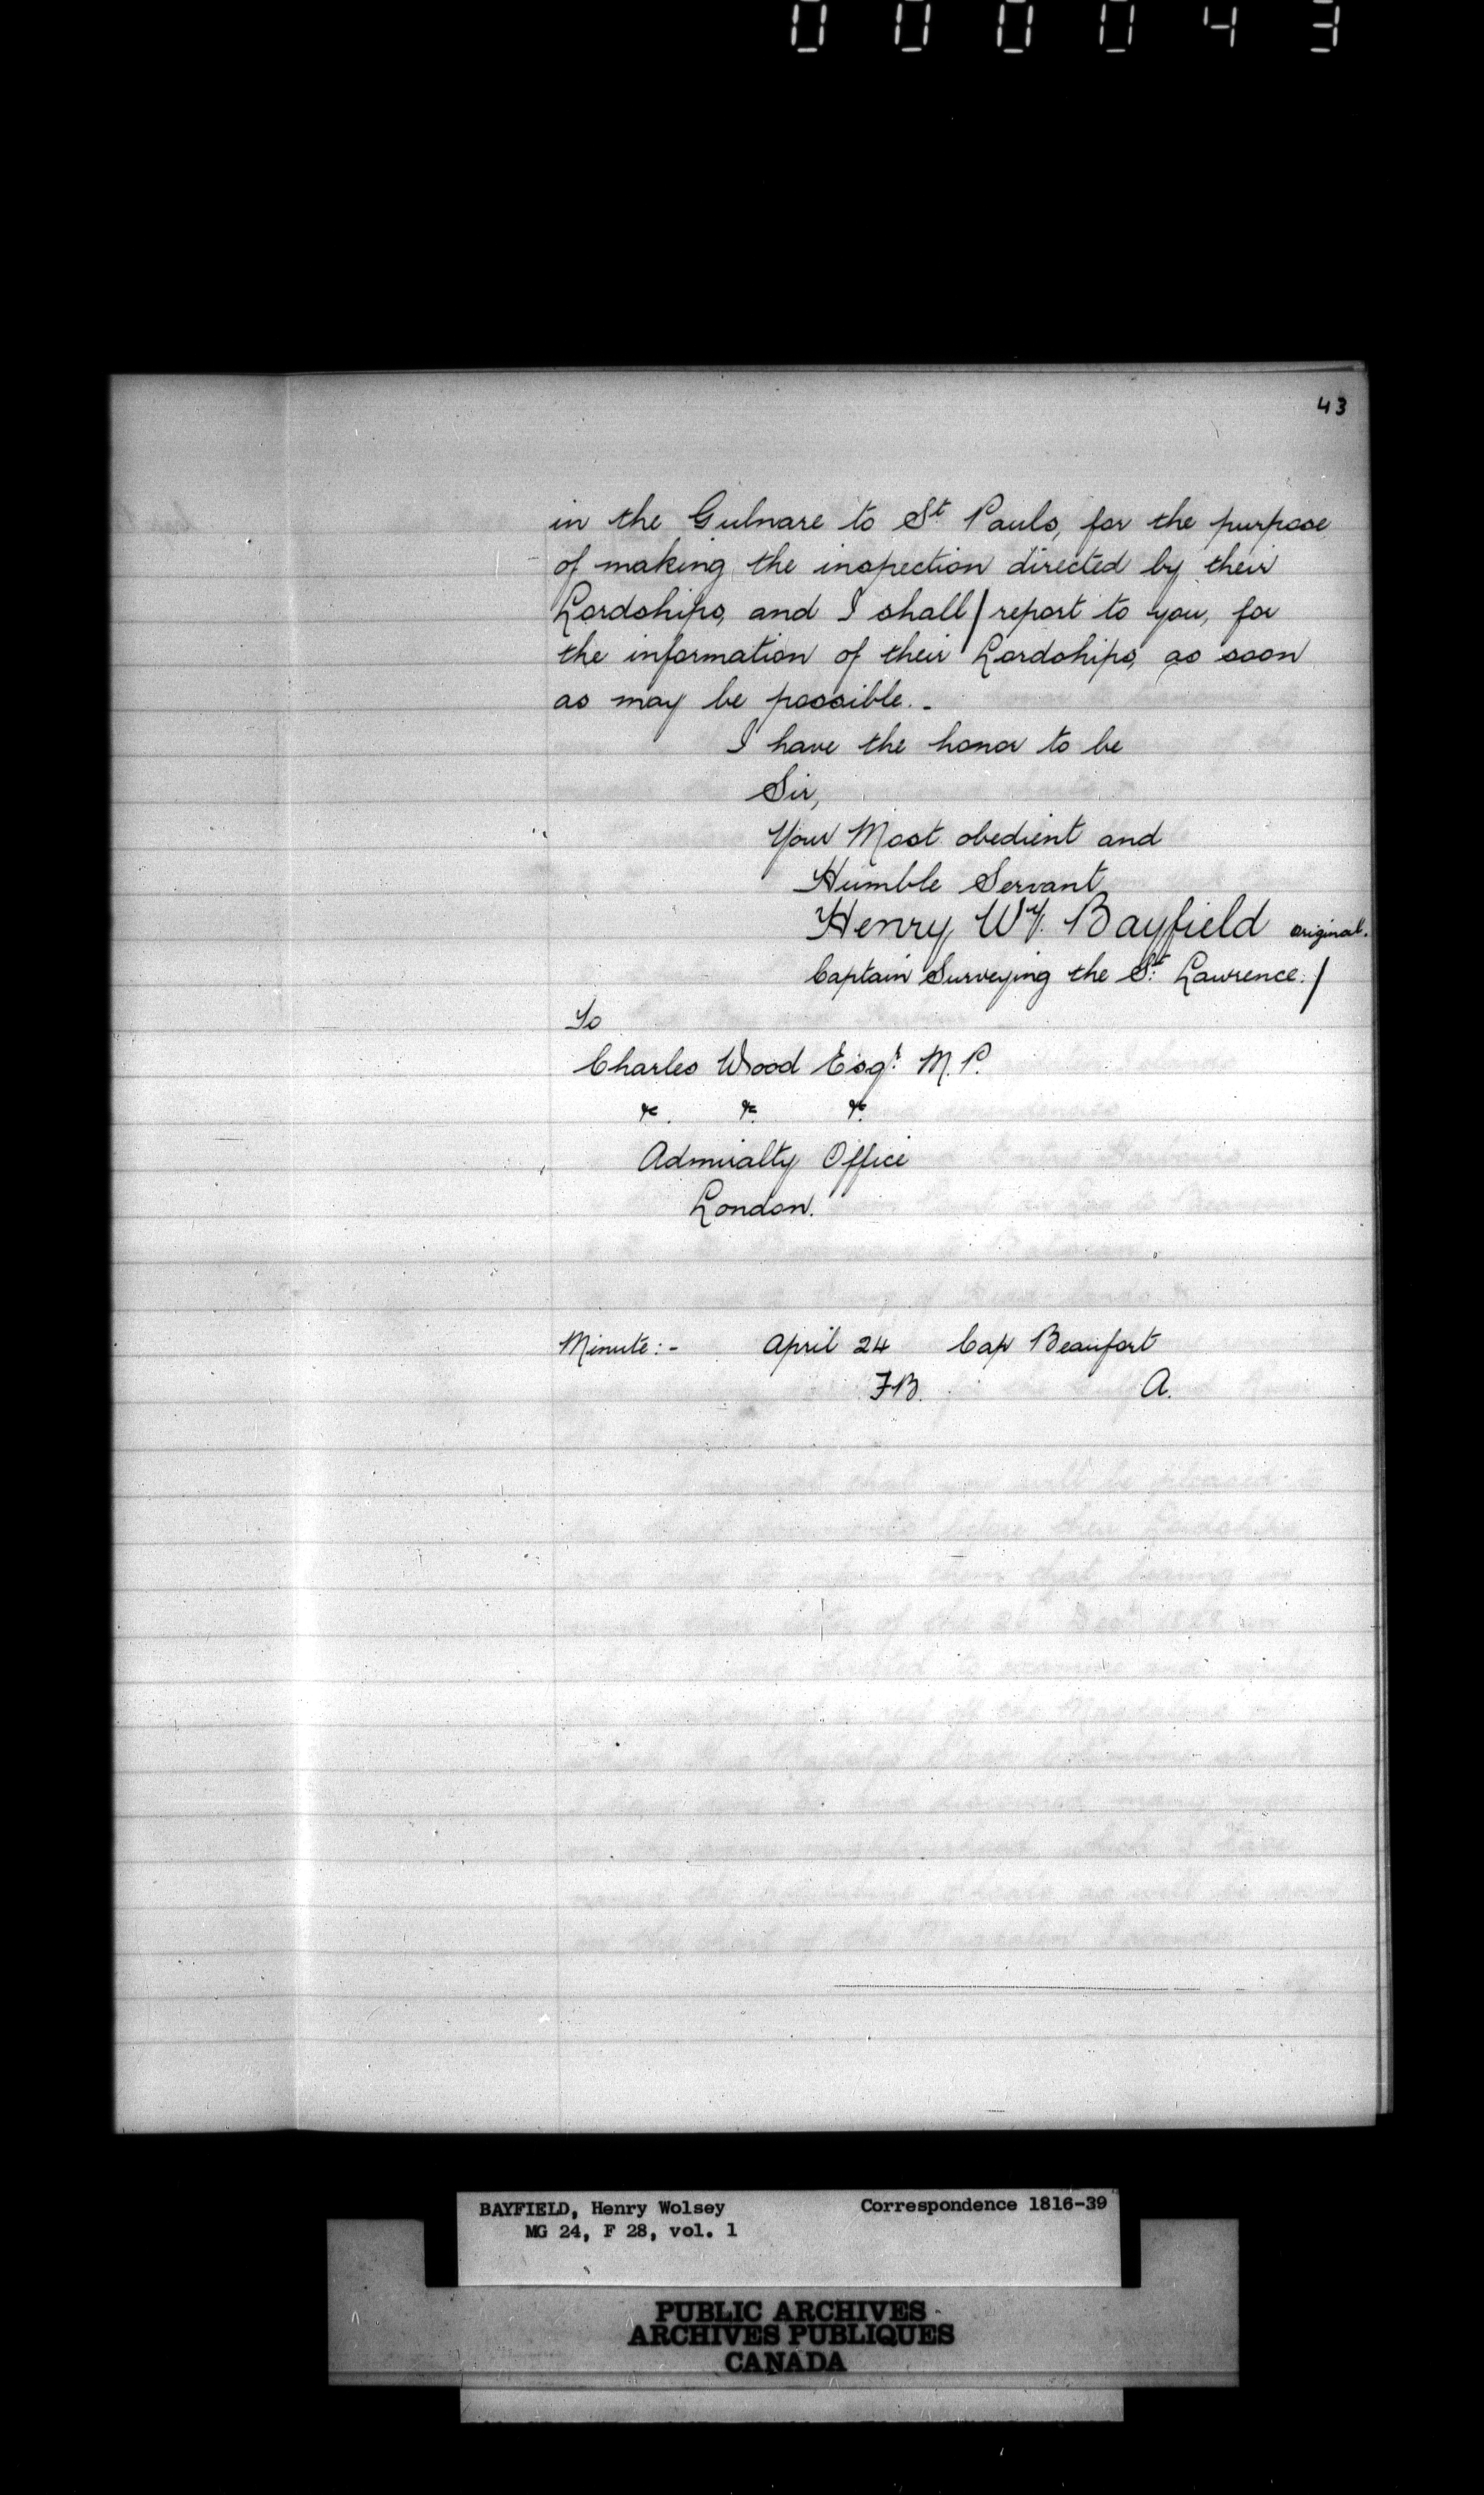 000043
43
in the Gulnare to St. Pauls, for the purpose
of making the inspection directed by their
Lordships, and I shall / report to you, for
the information of their Lordships, as soon
as may be possible. -
I have the honor to be
Sir,
Your Most obedient and
Humble Servant
Henry Wy. Bayfield original.
Captain Surveying the St. Lawrence. /
To
Charles Wood Esqr. M.P.
&c. &c. &c.
Admiralty Office
London.
Minute:- April 24 Cap Beaufort
FB. A.
BAYFIELD, Henry Wolsey Correspondence 1816-39
MG 24, F 28, vol. 1
PUBLIC ARCHIVES
ARCHIVES PUBLIQUES
CANADA